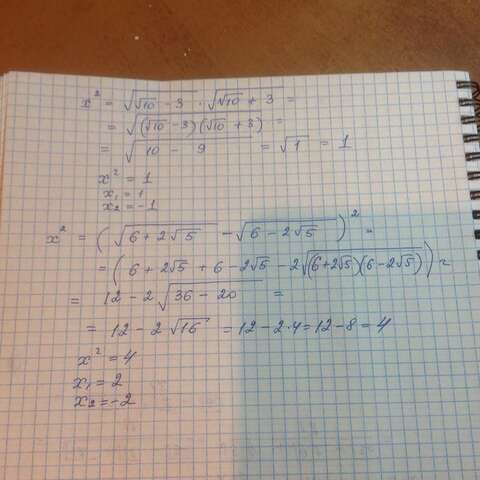 x² = √(√10 - 3) · √(√10 + 3) =
= √((√10 - 3)(√10 + 3)) =
= √(10 - 9) = √1 = 1
x² = 1
x₁ = 1
x₂ = -1
x² = (√(6 + 2√5) - √(6 - 2√5))² =
= (6 + 2√5 + 6 - 2√5 - 2√((6 + 2√5)(6 - 2√5))) =
= 12 - 2√(36 - 20) =
= 12 - 2√16 = 12 - 2·4 = 12 - 8 = 4
x² = 4
x₁ = 2
x₂ = -2